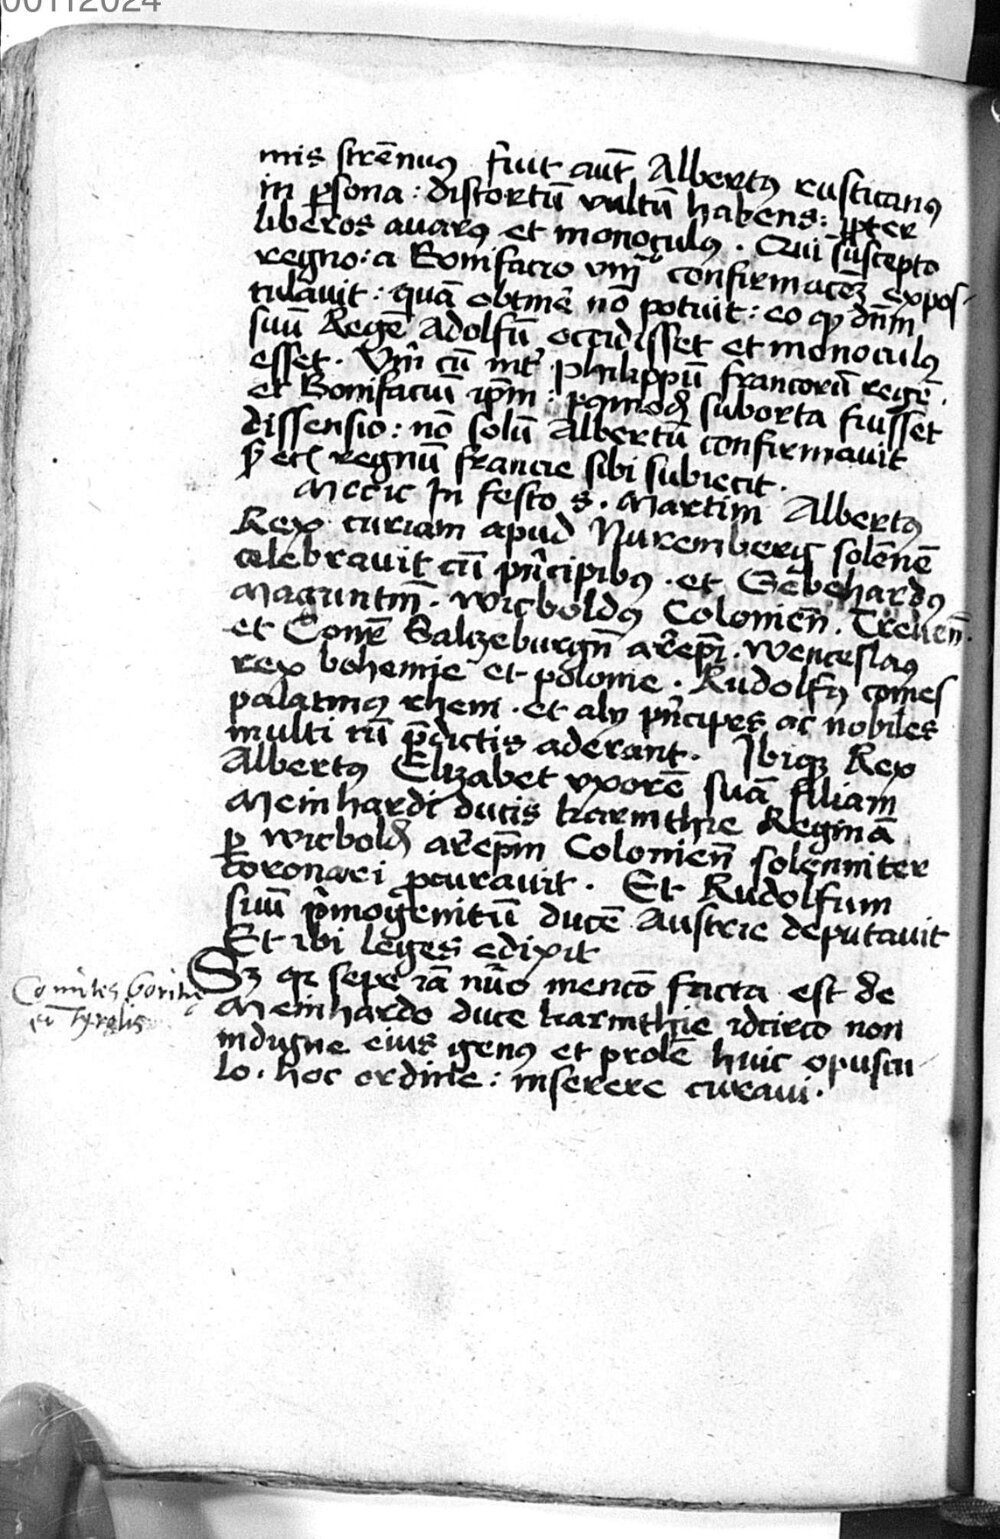 00112024
mis strēnuꝯ fuit aut̄ Albertꝯ rusticanꝯ
in ꝑsona : distortū vultū habens : ꝓpter
liberos avarꝯ et monoculꝯ . Qui suscepto
regno : a Bonifacio viijͦ confirmacōeȝ expos-
tulavit : quā obtinē nō potuit : eo ꝙ dn̄m
suū Regē Adolfū occidisset et monoculꝯ
esset . Vn̄ cū int̄ Philippū francorū regē
et Bonifaciū ip̄m : suborta fuisset
dissensio : nō solū Albertū confirmavit
regnū francie sibi subiecit .
Mccic In festo s . Martini Albertꝯ
Rex curiam apud Nuremberg solēnē
celebravit cū prīcipibꝯ . et Gebehardꝯ
Maguntin̄ . wicboldꝯ Colonien̄ . Treuen̄ .
et Conrē Salczeburgn̄ arēpī . wenceslaꝯ
rex bohemie et polonie . Rudolfꝯ comes
palatinꝯ rheni . et alij prīcipes ac nobiles
multi cū p̄dictis aderant . Ibiqꝫ Rex
Albertꝯ Elizabet vxorē suā filiam
Meinhardi ducis karinthie Reginā
ꝑ wicbold arēpm̄ Colonien̄ solenniter
coronari ꝓcuravit . Et Rudolfum
suū prīmogenitū ducē Austrie deputavit
Et ibi leges edixit
Sȝ qꝛ sepe iā nūo mencō facta est de
Comites Goritie
et Tyrolis
Meinhardo duce karinthie idcirco non
indigne eius genꝯ et prolē huic opuscu-
lo . hoc ordine : inserere curaui .